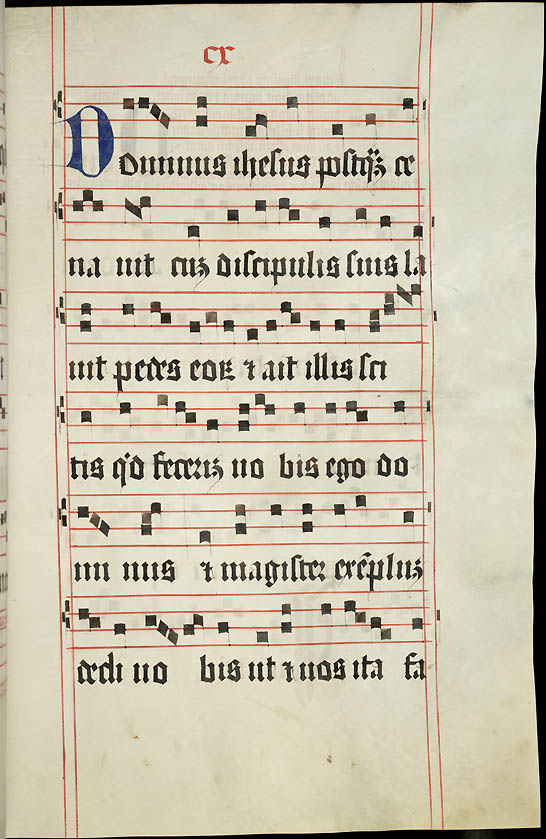 cx
Dominus ihesus postq̄ȝ ce
na uit cuȝ discipulis suis la
uit pedes eoꝝ ⁊ ait illis sci
tis q'd feceriȝ uo bis ego do
mi nus ⁊ magister exēpluȝ
dedi uo bis ut ⁊ uos ita fa